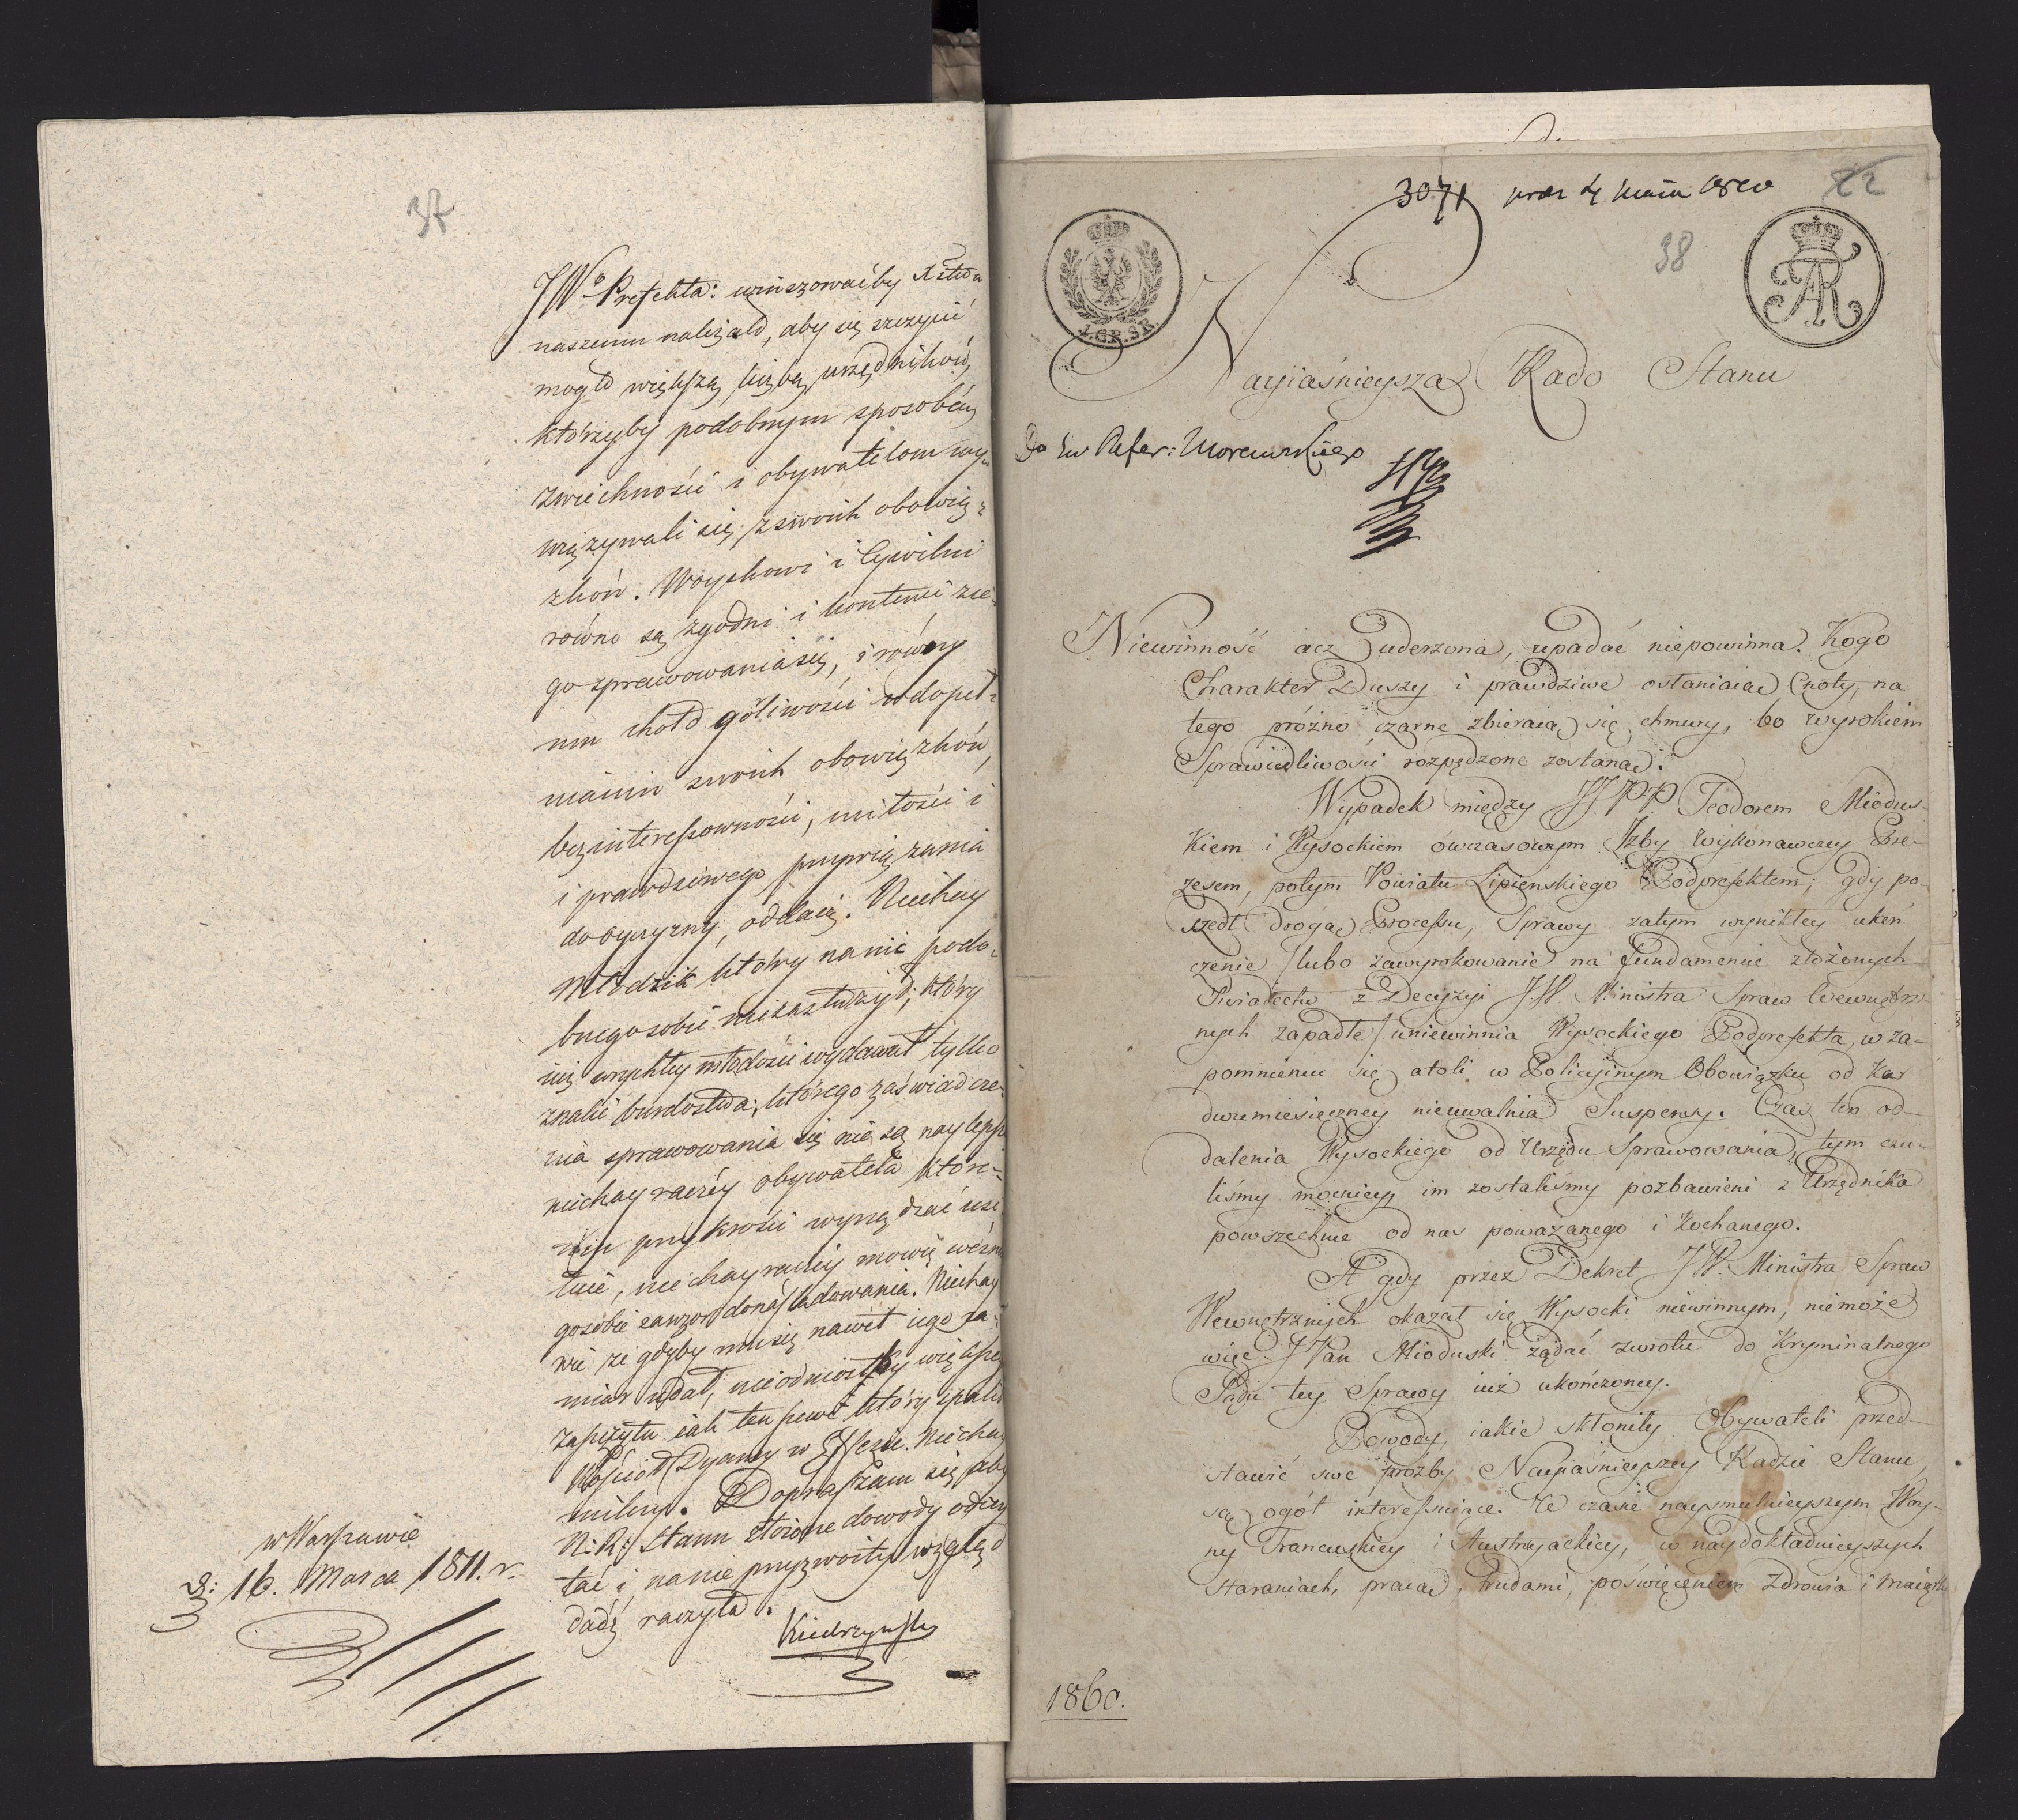 37
JWo Prefekta: winszowaćby
naszemu należało, aby się szczycić
mogło większą liczbą urzędników,
którzyby podobnym sposobem
zwierzchności i obywatelom wy-
wiązywali się z swoich obowią-
zków. Woyskowi i Cywilni
równo są zgodni i kontenci z ie-
go sprawowania się, i równy
mu hołd gorliwości w dopeł-
nianiu swoich obowiązków,
bezinteressowności, miłości i
i prawdziwego przywiązania
do oyczyzny, oddaią. Niechay
Młodzik który na nic podo-
bnego sobie niezasłużył, który
w młodości wydawał tylko
znaki burdostwa, którego zaświadcze-
nia sprawowania się nie są naylepsze
niechay raczey obywatela które-
przykrości wyrządzać
niechay raczey mowię weźmie
go sobie za wzor do naśladowania. Niechay
wie że gdyby mu się nawet iego za-
miar udał, nieodniosłby większego
zaszczytu iak ten który spalił
Kościół Dyanny w Efezie. Niechay
milczy. Dopraszam się aby
N: R: Stanu złożone dowody odczy-
tać i na nie przyzwoity wzgląd
dadź raczyła.
w Warszawie
d: 16. Marca 1811. r.
Kiedrzyński
3071 4 maia 1810
22
38
Z.GR.SR.
Nayiaśnieysza Rado Stanu
Do Refer: Morawskiego
Niewinność acz uderzona, upadać niepowinna. Kogo
Charakter Duszy i prawdziwe osłaniaiąc Cnoty, na
tego próżno czarne zbieraią się chmury, bo wyrokiem
Sprawiedliwości rozpędzone zostaną.
Wypadek między JJ.P.P. Teodorem Miodus-
kiem i Wysockiem ówczasowym Izby Wykonawczey Pre-
zesem, potym Powiatu Lipieńskiego Podprefektem; gdy po-
szedł drogą Processu, Sprawy zatym wynikłey ukoń
czenie / lubo zawyrokowanie na fundamencie złożonych
Świadectw z Decyzyi J.W. Ministra Spraw Wewnętrz-
nych zapadłe / uniewinnia Wysockiego Podprefekta, w za-
pomnieniu się atoli w Policyjnym Obowiązku od Kar
dwumiesięczney nieuwalnia Suspensy. Czas ten od-
dalenia Wysockiego od Urzędu Sprawowania, tym czu-
liśmy mocniey, im zostaliśmy pozbawieni z Urzędnika
powszechnie od nas poważanego i Kochanego.
A gdy przez Dekret JW. Ministra Spraw
Wewnętrznych okazał się Wysocki niewinnym, niemoże
więc J Pan Mioduski żądać zwrotu do Kryminalnego
Sądu tey Sprawy iuż ukończoney.
Powody, iakie skłoniły Obywateli przed-
stawić swe prozby Nayiaśnieyszey Radzie Stanu,
są ogół interessuiące. W czasie naysmutnieyszym Woy-
ny Francuskiey i Austryackiey, w naydokładnieyszych
staraniach, pracą, trudami, poświęceniem Zdrowia i maiątk
1860.